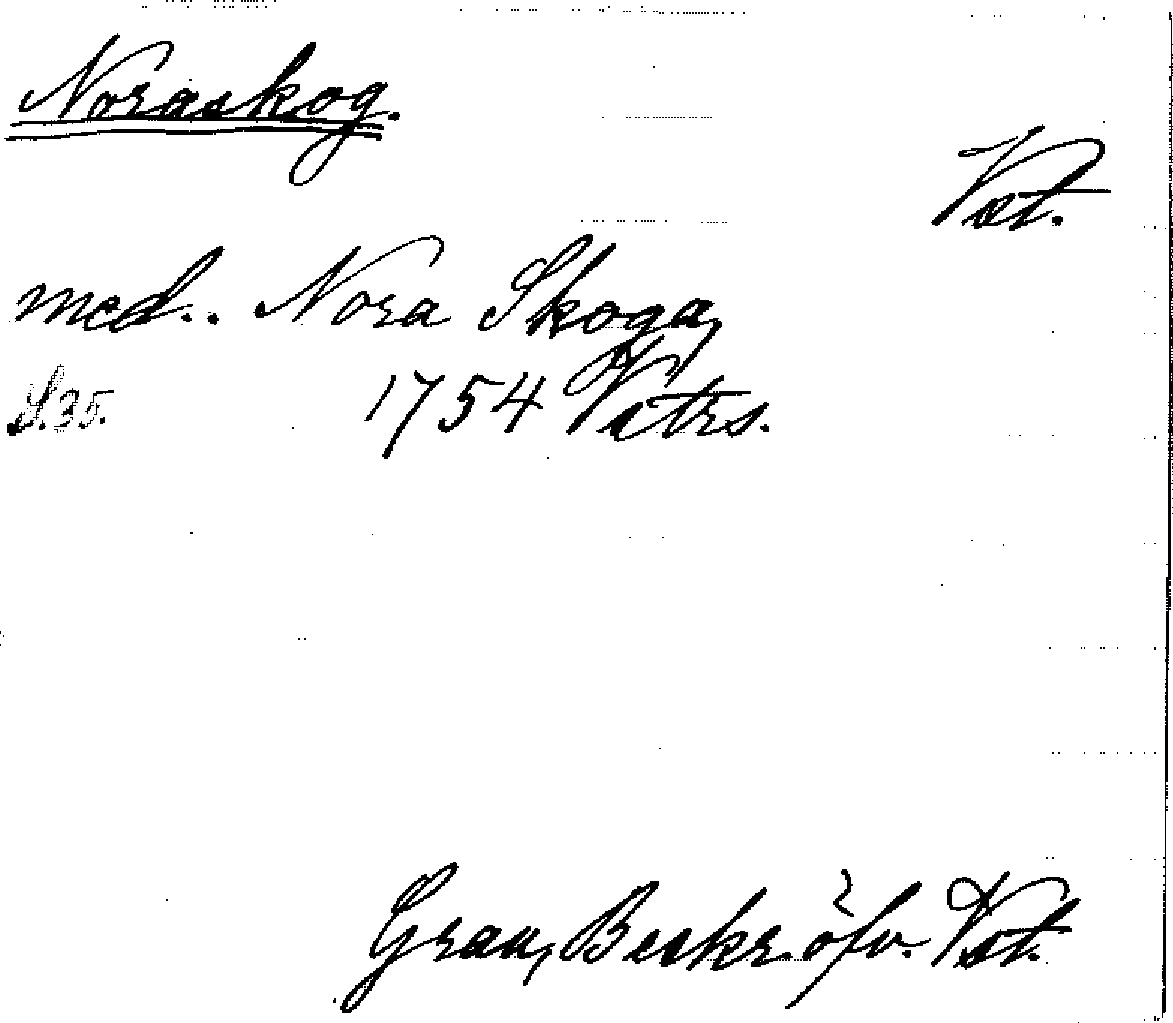 Noraskog.
Vst.
med.. Nora Skoga,
S.35. 1754 Vstrs.
Grau, Beskr. öfv. Vst.